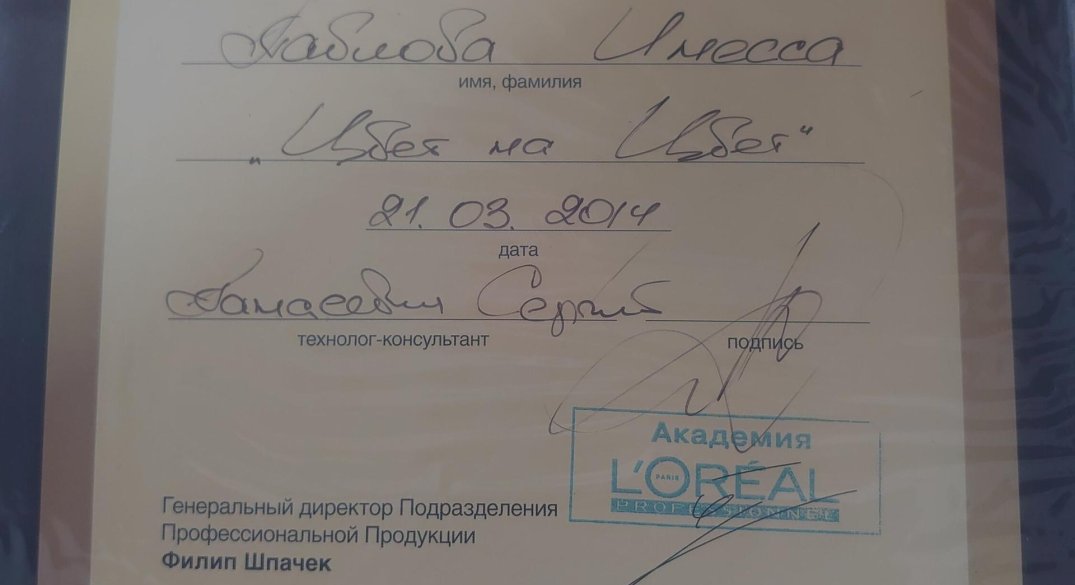 Павлова Инесса
имя, фамилия
„Цвет на Цвет“
21.03.2014
дата
Сергей
технолог-консультант
подпись
Академия
L'ORÉAL
PARIS
PROFESSIONNEL
Генеральный директор Подразделения
Профессиональной Продукции
Филип Шпачек